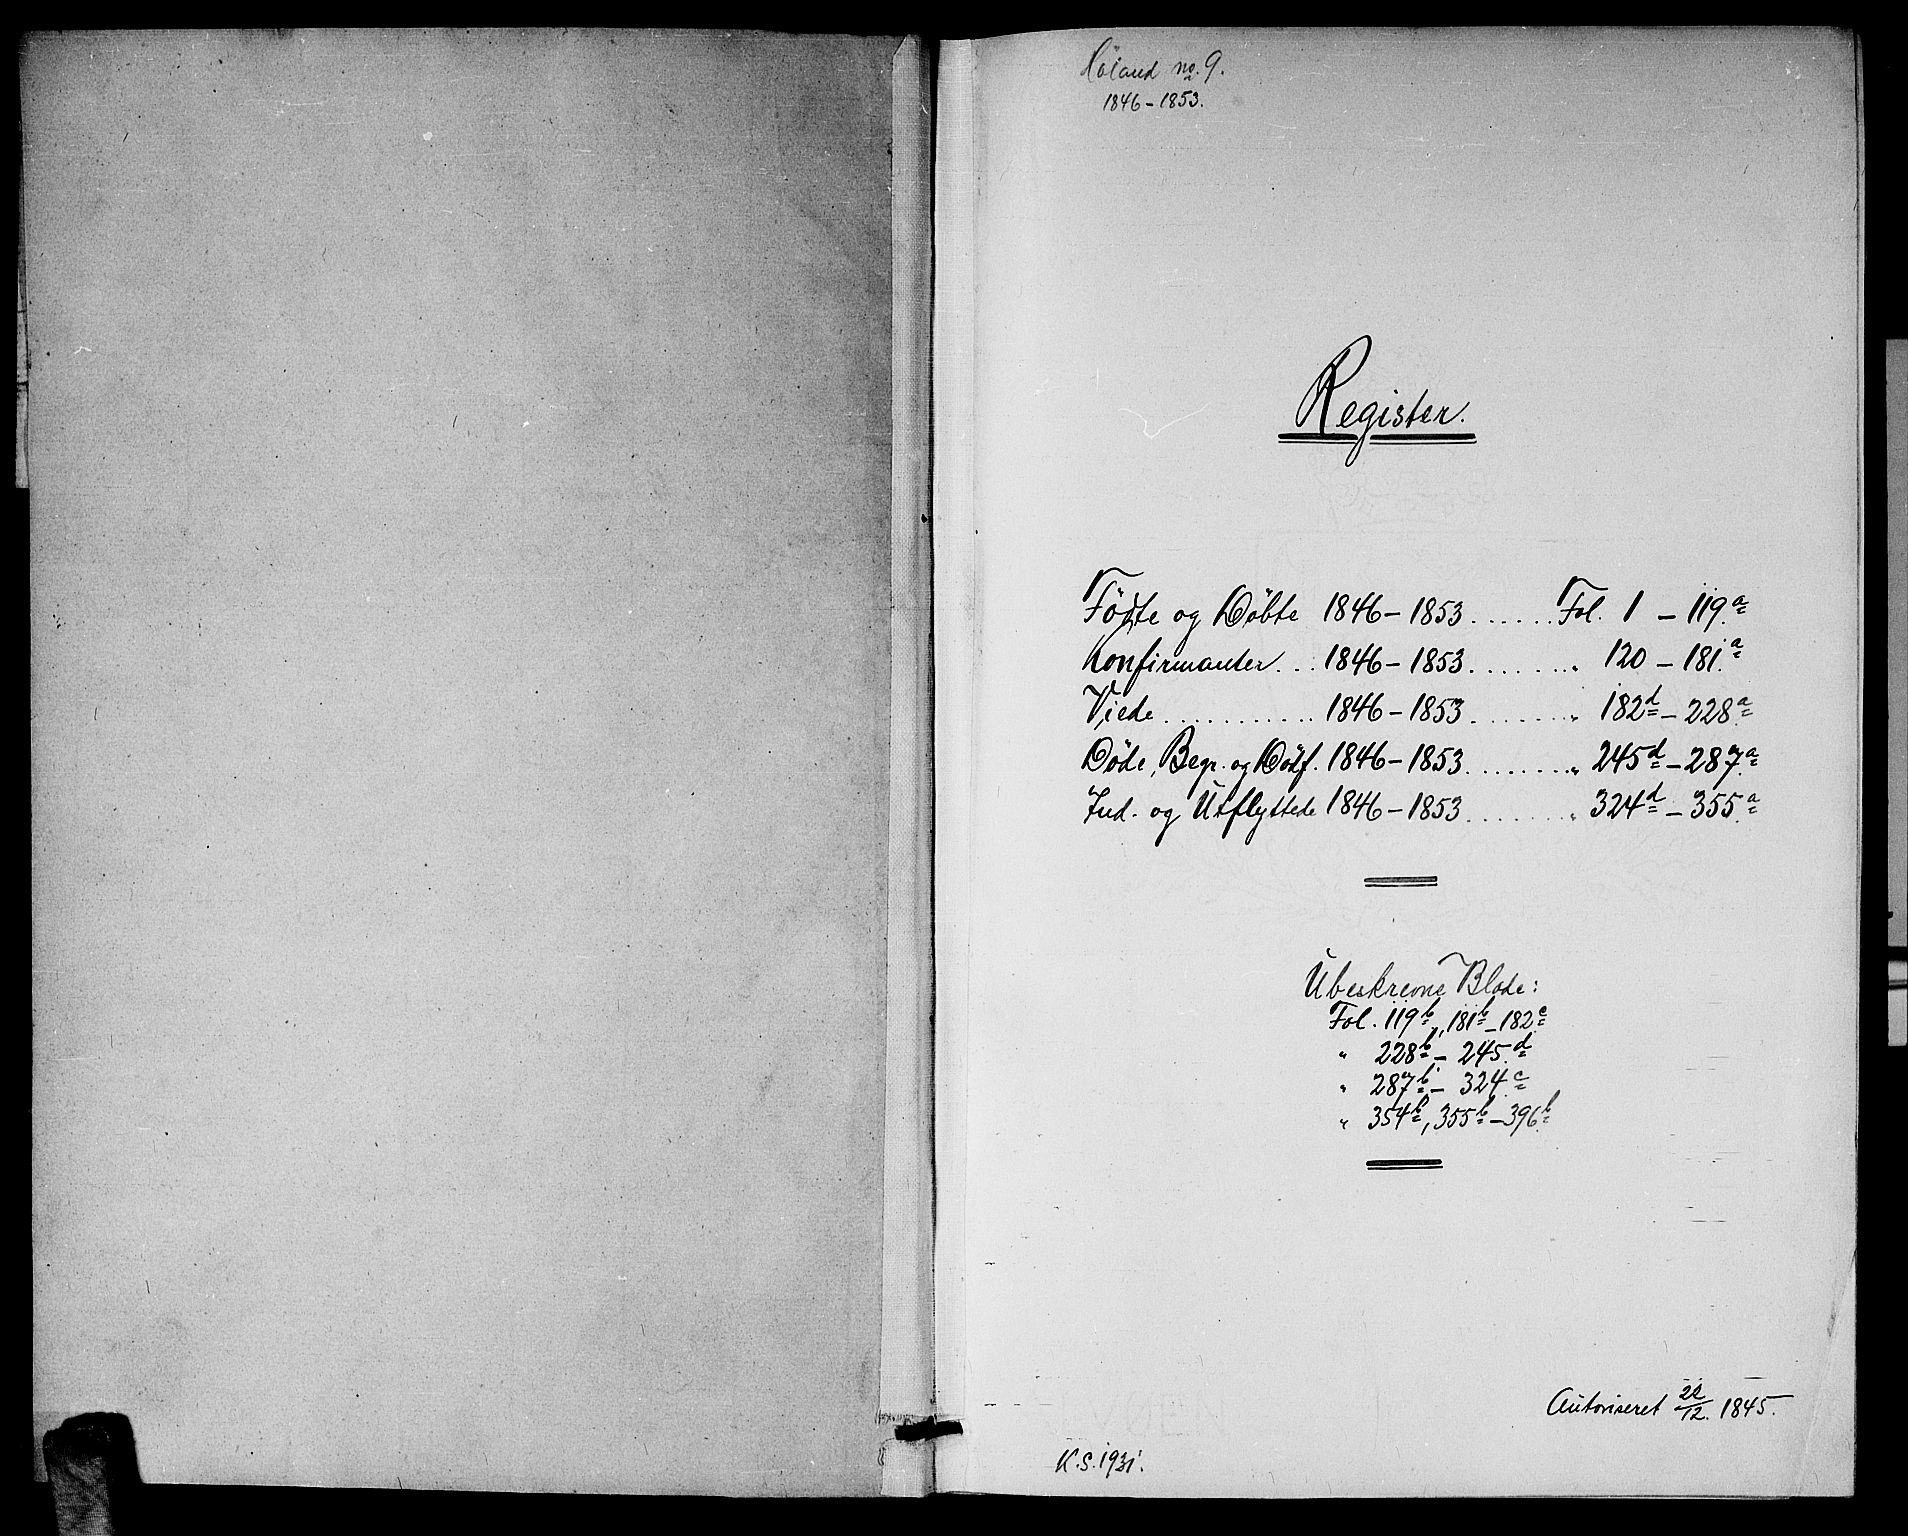 Höland no. 9.
1846–1853.
Register.
Födte og Döbte 1846–1853 ...... Fol. 1 – 119.a
Konfirmanter... 1846–1853 ........ " 120 – 181.a
Viede ............ 1846–1853 ........ " 182d – 228a
Döde, Begr. og Dödf. 1846–1853 ........ " 245d – 287.a
Ind- og Utflyttede 1846–1853 ........ " 324d – 355.a
Ubeskrevne Blade:
Fol. 119b, 181b – 182c
" 228b – 245.d
" 287b – 324.c
" 354b, 355b – 396b
Autoriseret /12. 1845.
K.S. 1931.